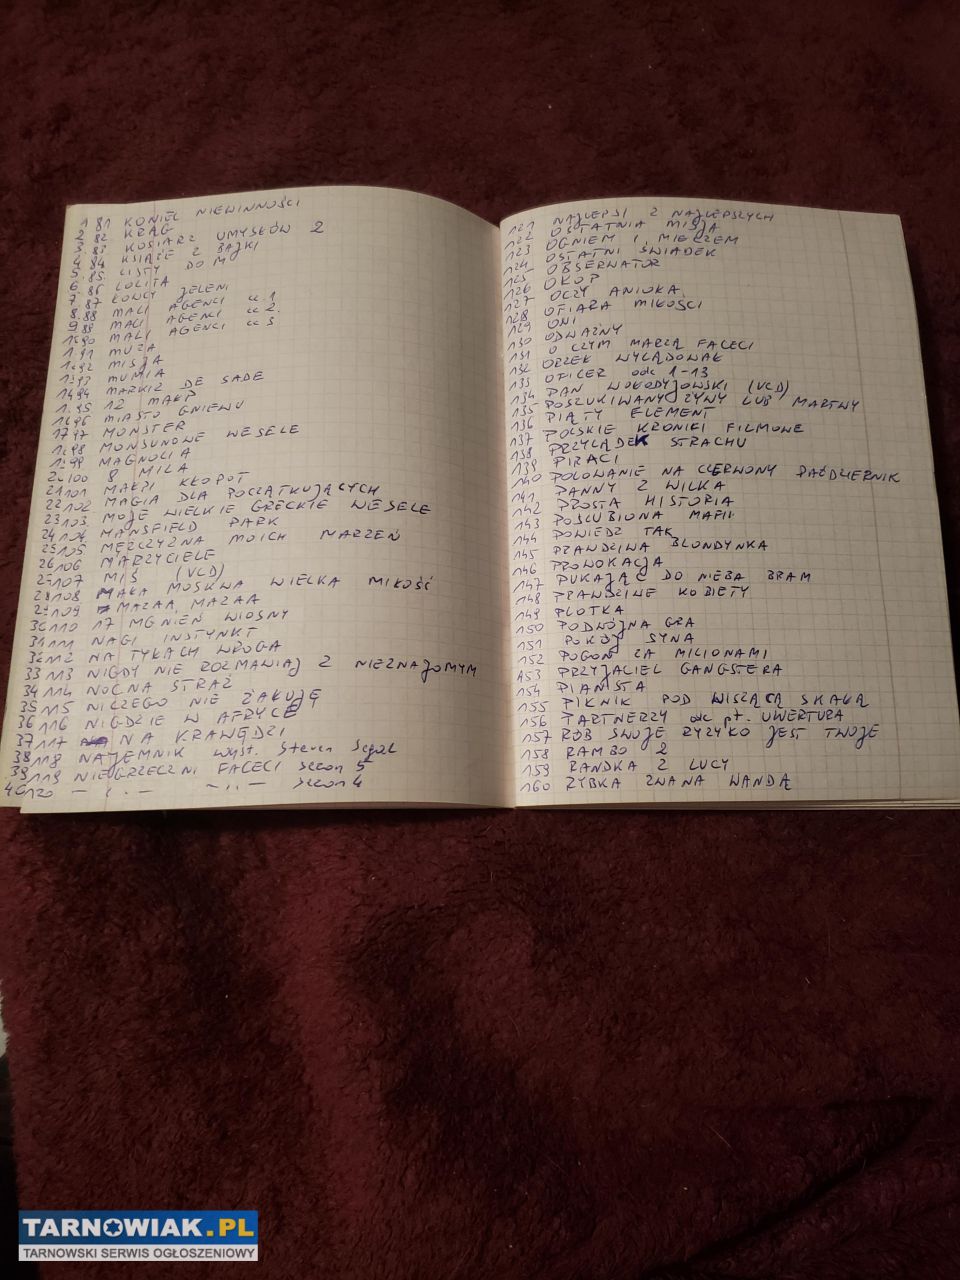 1. 81 KONIEC NIEWINNOŚCI
2. 82. KRĄG
3. 83 KOSIARZ UMYSŁÓW 2
4. 84 KSIĄŻE Z BAJKI
5. 85. LISTY DO M
6. 86 LOLITA
7. 87 ŁOWCY JELENI
8. 88 MALI AGENCI cz. 1
9. 89 MALI AGENCI cz 2.
10. 90 MALI AGENCI cz 3
11. 91 MUZA
12. 92 MISJA
13. 93 MUMIA
14. 94 MARKIZ DE SADE
15. 95 12 MAŁP
16. 96 MIASTO GNIEWU
17. 97 MONSTER
18. 98 MONSUNOWE WESELE
19. 99 MAGNOLIA
20. 100 8 MILA
21. 101 MAŁPI KŁOPOT
22. 102 MAGIA DLA POCZĄTKUJĄCYCH
23. 103. MOJE WIELKIE GRECKIE WESELE
24. 104 MANSFIELD PARK
25. 105 MĘŻCZYZNA MOICH MARZEŃ
26. 106 MARZYCIELE
27. 107 MIŚ (VCD)
28. 108 MAŁA MOSKWA WIELKA MIŁOŚĆ
29. 109 MAZAA, MAZAA
30. 110 17 MGNIEŃ WIOSNY
31. 111 NAGI INSTYNKT
32. 112 NA TYŁACH WROGA
33 113 NIGDY NIE ROZMAWIAJ Z NIEZNAJOMYM
34 114 NOCNA STRAŻ
35 115 NICZEGO NIE ŻAŁUJĘ
36 116 NIGDZIE W AFRYCE
37 117 NA KRAWĘDZI
38 118 NAJEMNIK wyst. Steven Segal
39 119 NIEGRZECZNI FACECI sezon 5
40 120 — „ — — „ — sezon 4
121 NAJLEPSI Z NAJLEPSZYCH
122 OSTATNIA MISJA
123 OGNIEM I MIECZEM
124 OSTATNI ŚWIADEK
125 OBSERWATOR
126 OKOP
127 OCZY ANIOŁA
128 OFIARA MIŁOŚCI
129 ONI
130 ODWAŻNY
131 O CZYM MARZĄ FACECI
132 ORZEŁ WYLĄDOWAŁ
133 OFICER odc 1-13
134 PAN WOŁODYJOWSKI (VCD)
135 POSZUKIWANY ŻYWY LUB MARTWY
136 PIĄTY ELEMENT
137 POLSKIE KRONIKI FILMOWE
138 PRZYLĄDEK STRACHU
139 PIRACI
140 POLOWANIE NA CZERWONY PAŹDZIERNIK
141 PANNY Z WILKA
142 PROSTA HISTORIA
143 POŚLUBIONA MAFII
144 POWIEDZ TAK
145 PRAWDZIWA BLONDYNKA
146 PROWOKACJA
147 PUKAJĄC DO NIEBA BRAM
148 PRAWDZIWE KOBIETY
149 PLOTKA
150 PODWÓJNA GRA
151 POKÓJ SYNA
152 POGOŃ ZA MILIONAMI
153 PRZYJACIEL GANGSTERA
154 PIANISTA
155 PIKNIK POD WISZĄCĄ SKAŁĄ
156 PARTNERZY odc pt. UWERTURA
157 RÓB SWOJE RYZYKO JEST TWOJE
158 RAMBO 2
159 RANDKA Z LUCY
160 RYBKA ZWANA WANDĄ
TARNOWIAK.PL
TARNOWSKI SERWIS OGŁOSZENIOWY